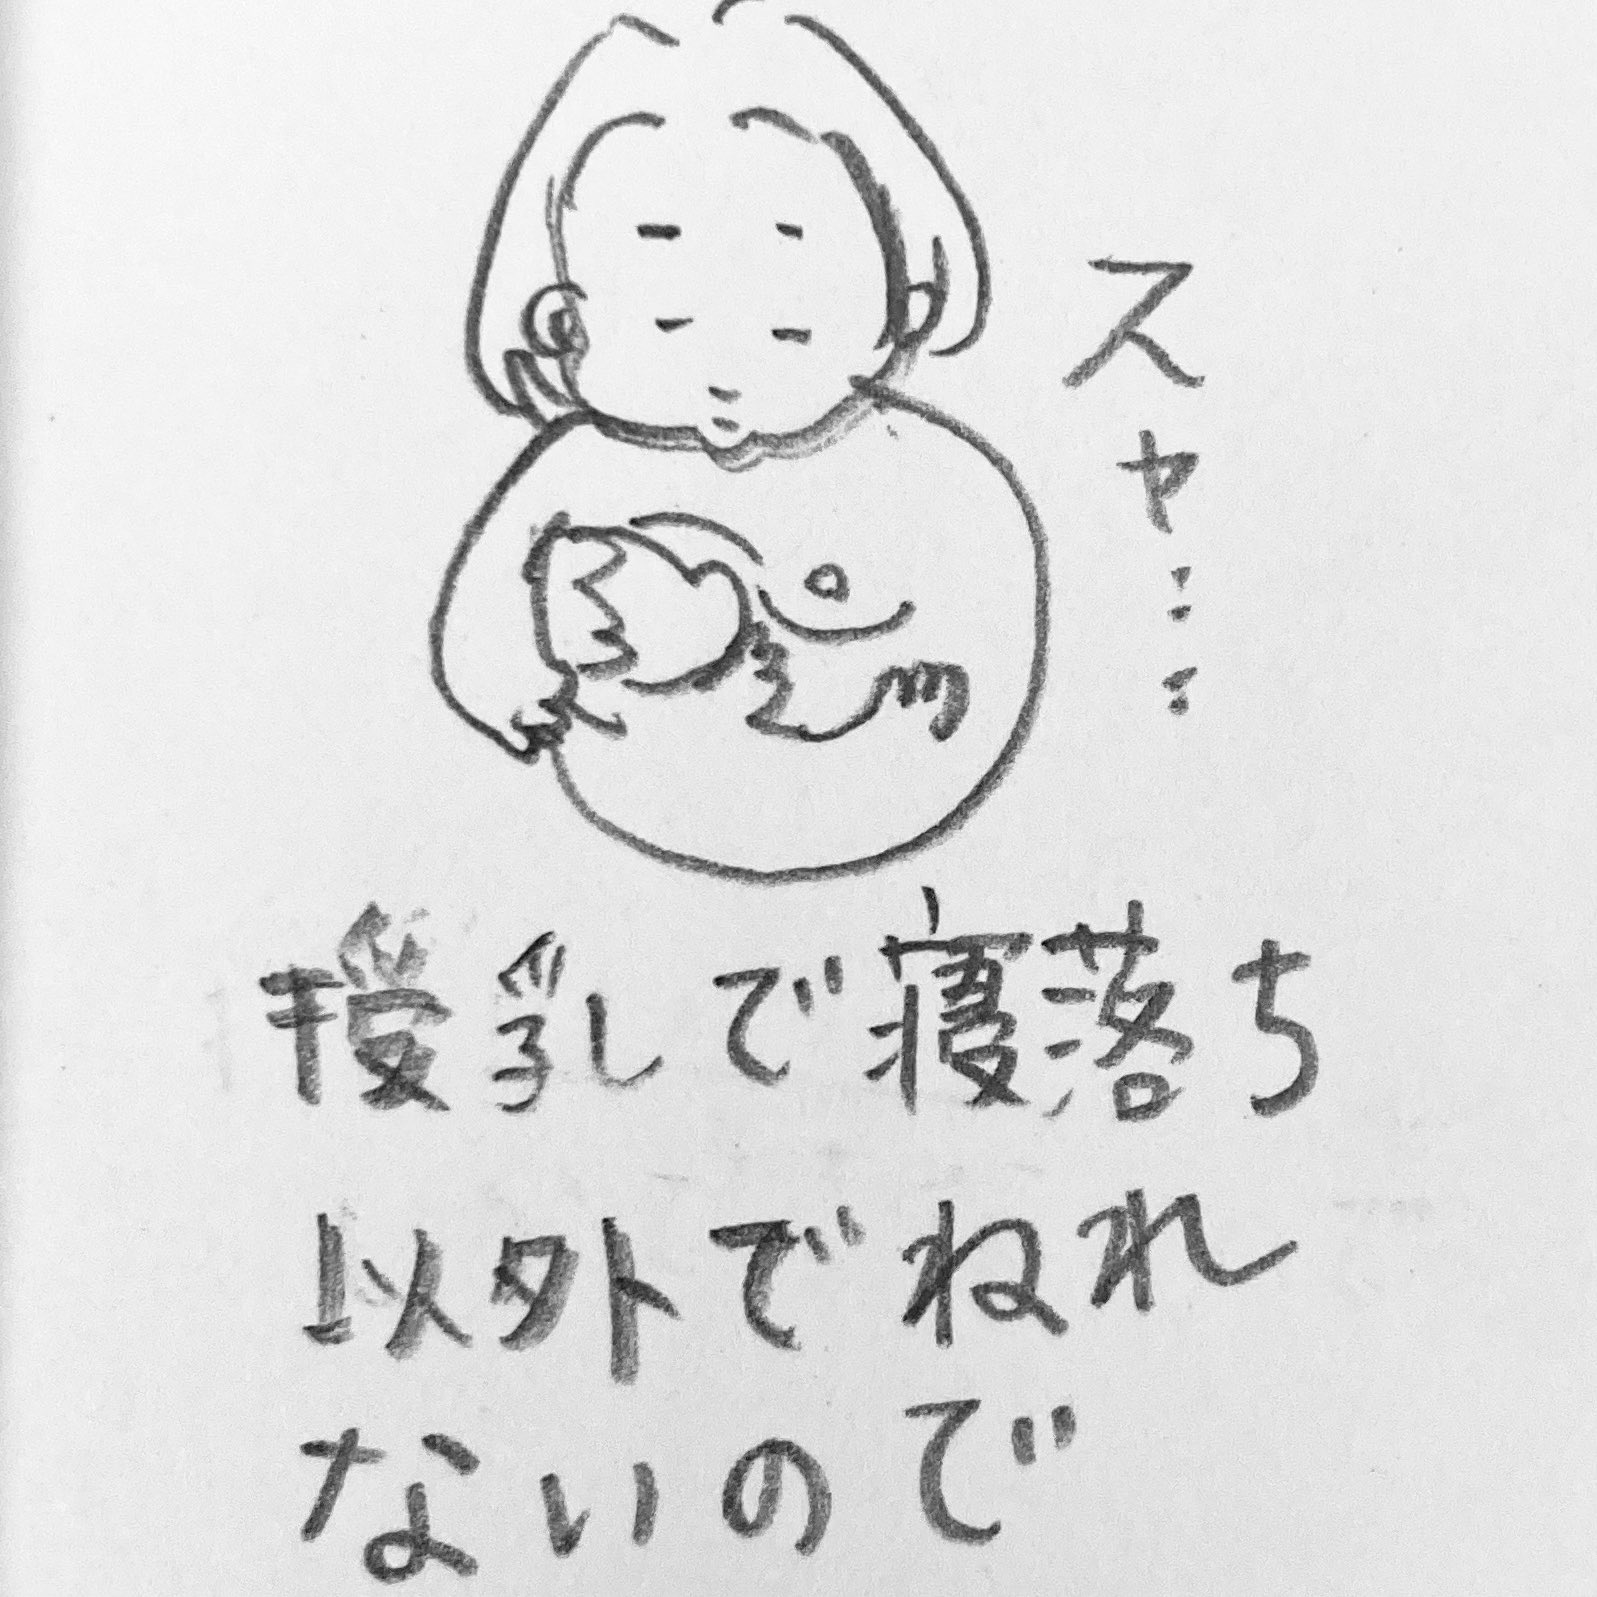 スヤ……
授乳で寝落ち
以外でねれ
ないので